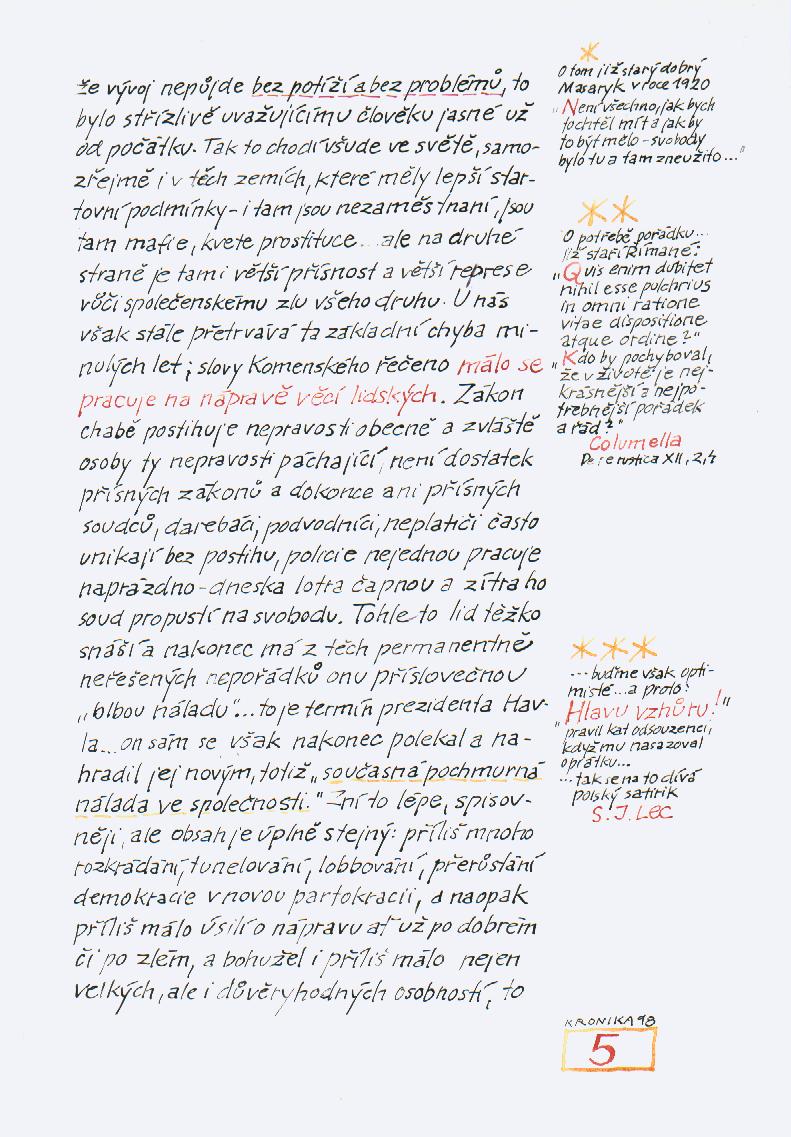 že vývoj nepůjde bez potíží a bez problémů, to
bylo střízlivě uvažujícímu člověku jasné už
od počátku. Tak to chodí všude ve světě, samo-
zřejmě i v těch zemích, které měly lepší star-
tovní podmínky - i tam jsou nezaměstnaní, jsou
tam mafie, kvete prostituce... ale na druhé
straně je tam i větší přísnost a větší represe
vůči společenskému zlu všeho druhu. U nás
však stále přetrvává ta základní chyba mi-
nulých let; slovy Komenského řečeno málo se
pracuje na nápravě věcí lidských. Zákon
chabě postihuje nepravosti obecně a zvláště
osoby ty nepravosti páchající, není dostatek
přísných zákonů a dokonce ani přísných
soudců, darebáci, podvodníci, neplatiči často
unikají bez postihu, policie nejednou pracuje
naprázdno - dneska lotra čapnou a zítra ho
soud propustí na svobodu. Tohle to lid těžko
snáší a nakonec má z těch permanentně
neřešených nepořádků onu příslovečnou
„blbou náladu"... to je termín prezidenta Hav-
la... on sám se však nakonec polekal a na-
hradil jej novým, totiž „současná pochmurná
nálada ve společnosti." Zní to lépe, spisov-
něji, ale obsah je úplně stejný: příliš mnoho
rozkrádání, tunelování, lobbování, přerůstání
demokracie v novou partokracii, a naopak
příliš málo úsilí o nápravu ať už po dobrém
či po zlém, a bohužel i příliš málo nejen
velkých, ale i důvěryhodných osobností, to
*
O tom již starý dobrý
Masaryk v roce 1920
„Není všechno, jak bych
to chtěl mít a jak by
to být mělo - svobody
bylo tu a tam zneužito..."
**
O potřebě pořádku...
již staří Římané:
„Quis enim dubitet
nihil esse pulchrius
in omni ratione
vitae dispositione
atque ordine?"
„Kdo by pochyboval,
že v životě je nej-
krásnější a nejpo-
třebnější pořádek
a řád?"
Columella
De re rustica XII, 2,4
***
... buďme však opti-
misté... a proto:
„Hlavu vzhůru!"
pravil kat odsouzenci,
když mu nasazoval
oprátku...
... tak se na to dívá
polský satirik
S. J. LEC
KRONIKA 98
5